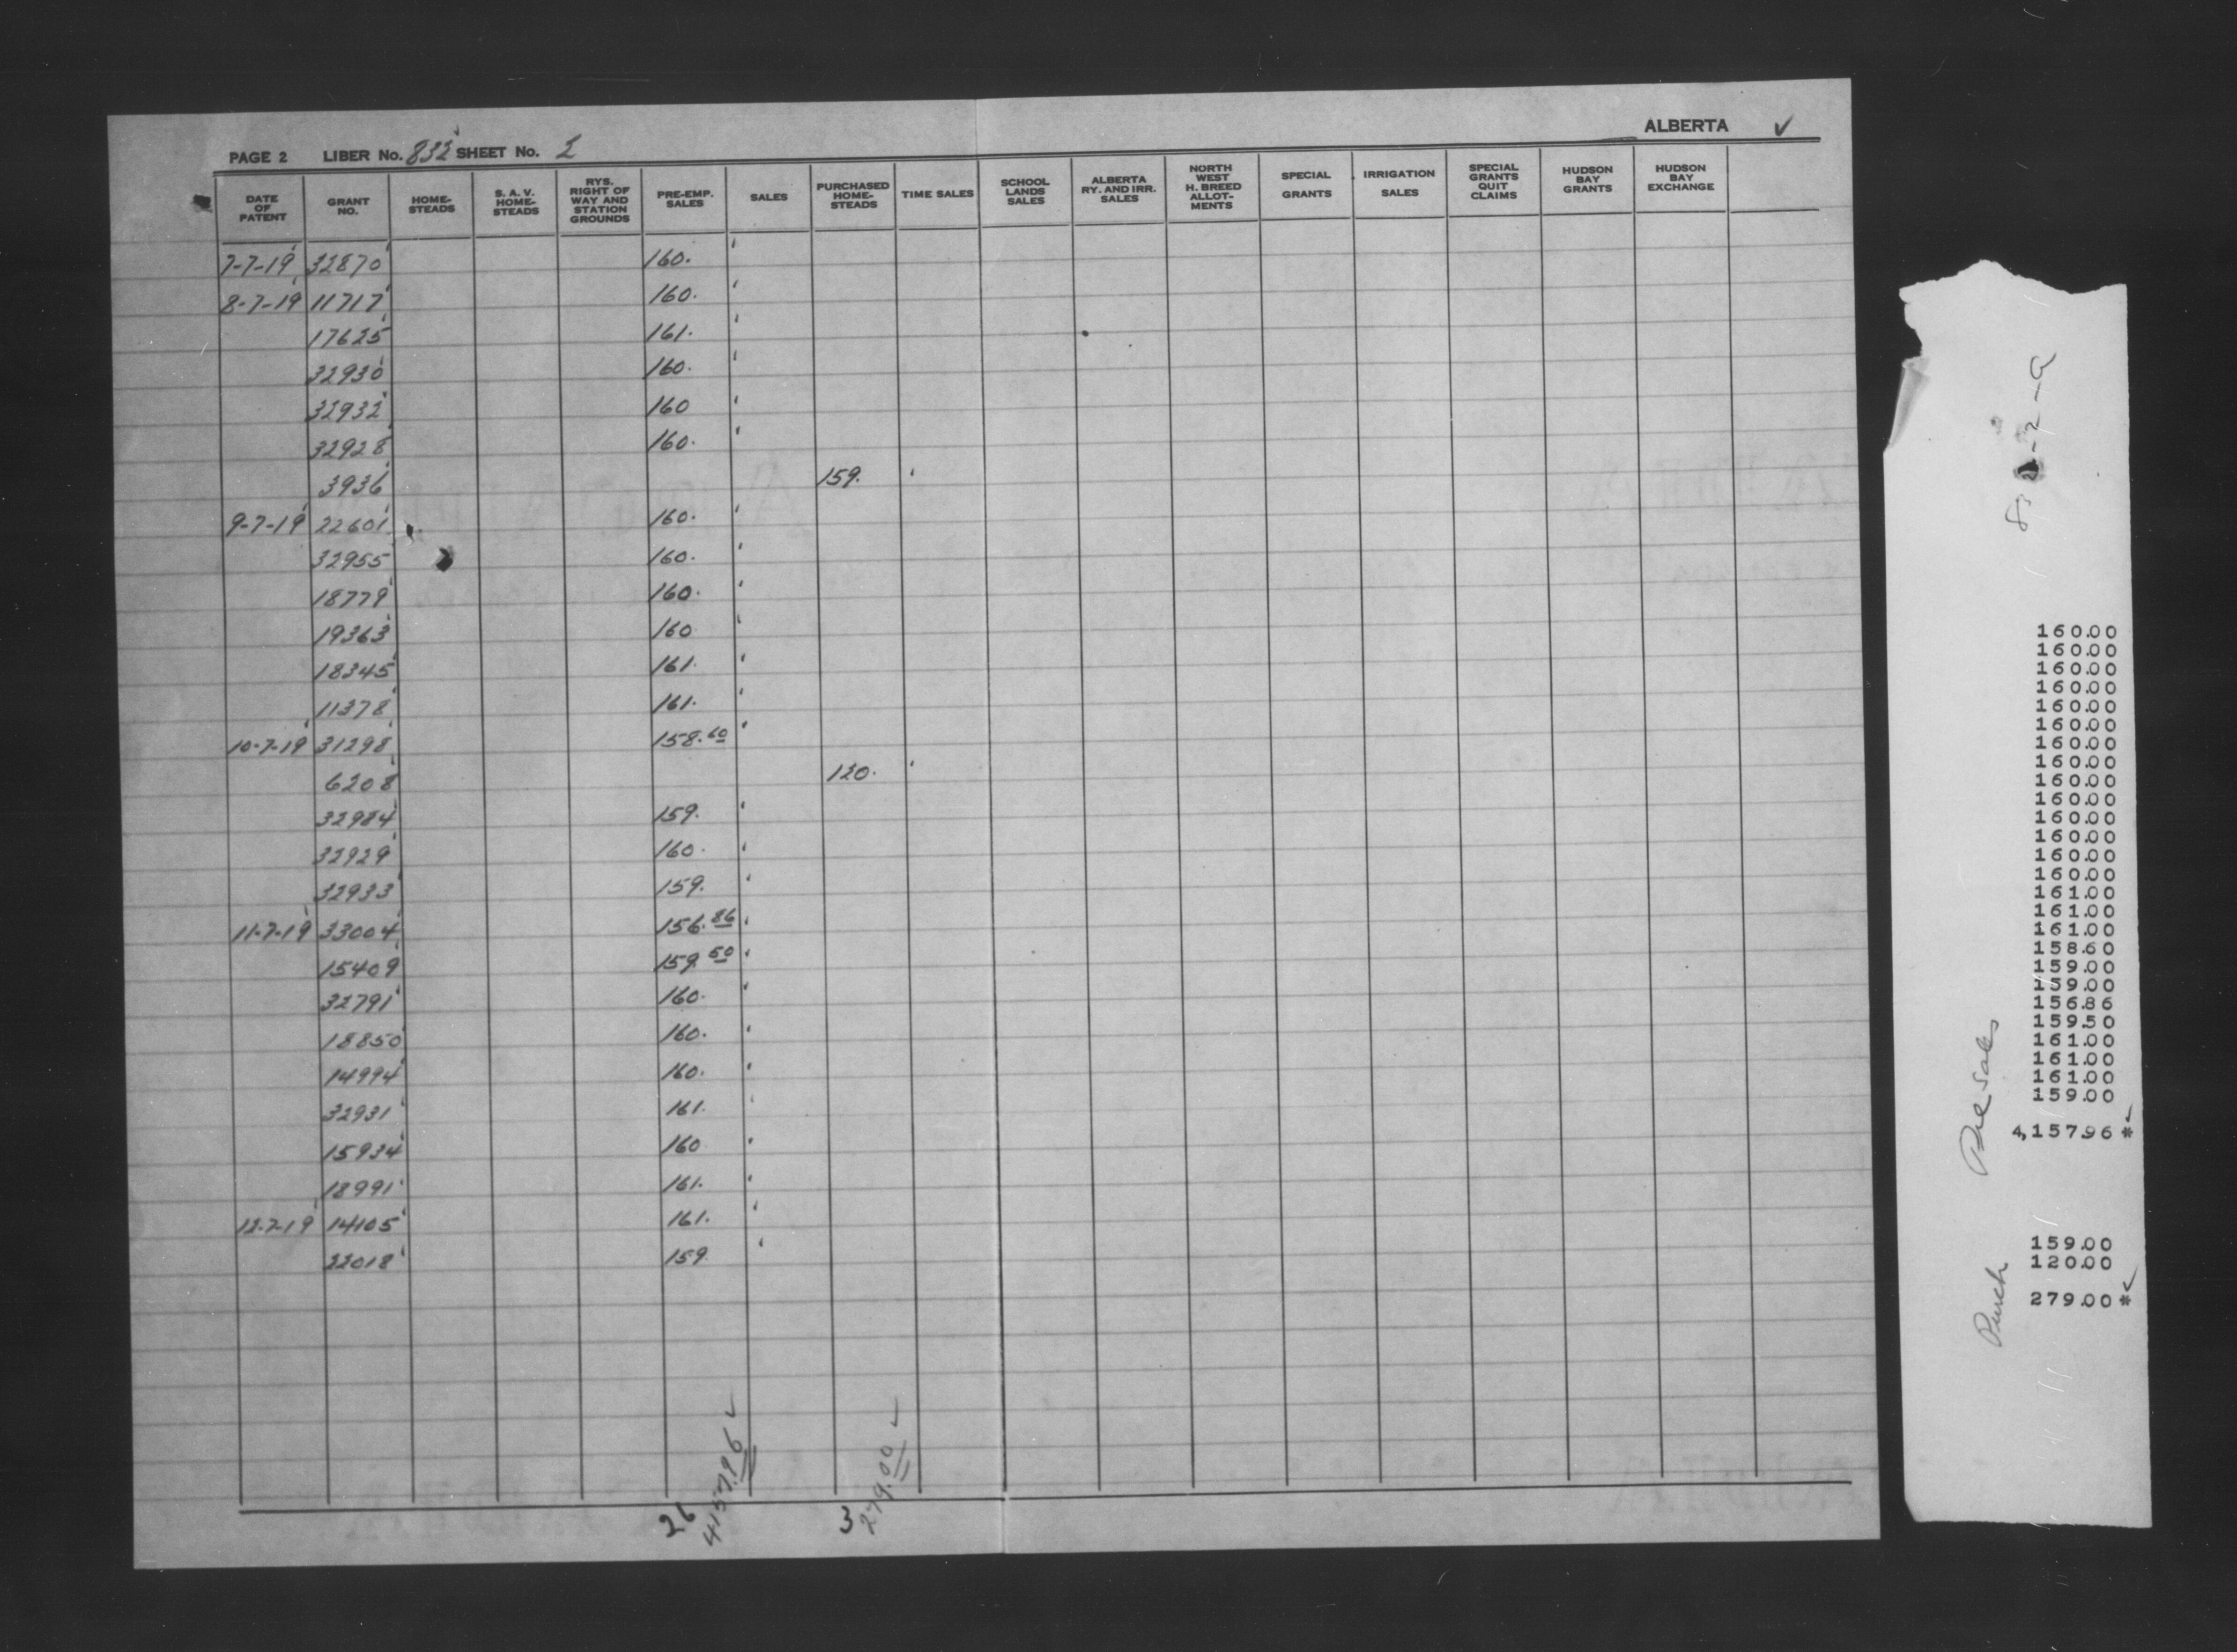 ALBERTA ✓
PAGE 2 LIBER No. 832 SHEET No. 2
DATE OF PATENT
GRANT NO.
HOME-STEADS
S. A. V. HOME-STEADS
RYS. RIGHT OF WAY AND STATION GROUNDS
PRE-EMP. SALES
SALES
PURCHASED HOME-STEADS
TIME SALES
SCHOOL LANDS SALES
ALBERTA RY. AND IRR. SALES
NORTH WEST H. BREED ALLOT-MENTS
SPECIAL GRANTS
IRRIGATION SALES
SPECIAL GRANTS QUIT CLAIMS
HUDSON BAY GRANTS
HUDSON BAY EXCHANGE
7-7-19 32870 160.
8-7-19 11717 160.
17625 161.
32930 160.
32932 160
32928 160.
3936 159.
9-7-19 22601 160.
32955 160.
18779 160.
19363 160
18345 161.
11378 161.
10-7-19 31298 158.60
6208 120.
32984 159.
32929 160.
32933 159.
11-7-19 33004 156.86
15409 159.50
32791 160.
18850 160.
14994 160.
32931 161.
15934 160
18991 161.
12-7-19 14105 161.
22018 159.
26 4157.96 ✓
3 279.00 ✓
160.00
160.00
160.00
160.00
160.00
160.00
160.00
160.00
160.00
160.00
160.00
160.00
160.00
160.00
161.00
161.00
161.00
158.60
159.00
159.00
156.86
159.50
161.00
161.00
161.00
159.00
Pre Sales
4,157.96 *
159.00
120.00
Purch
279.00 *